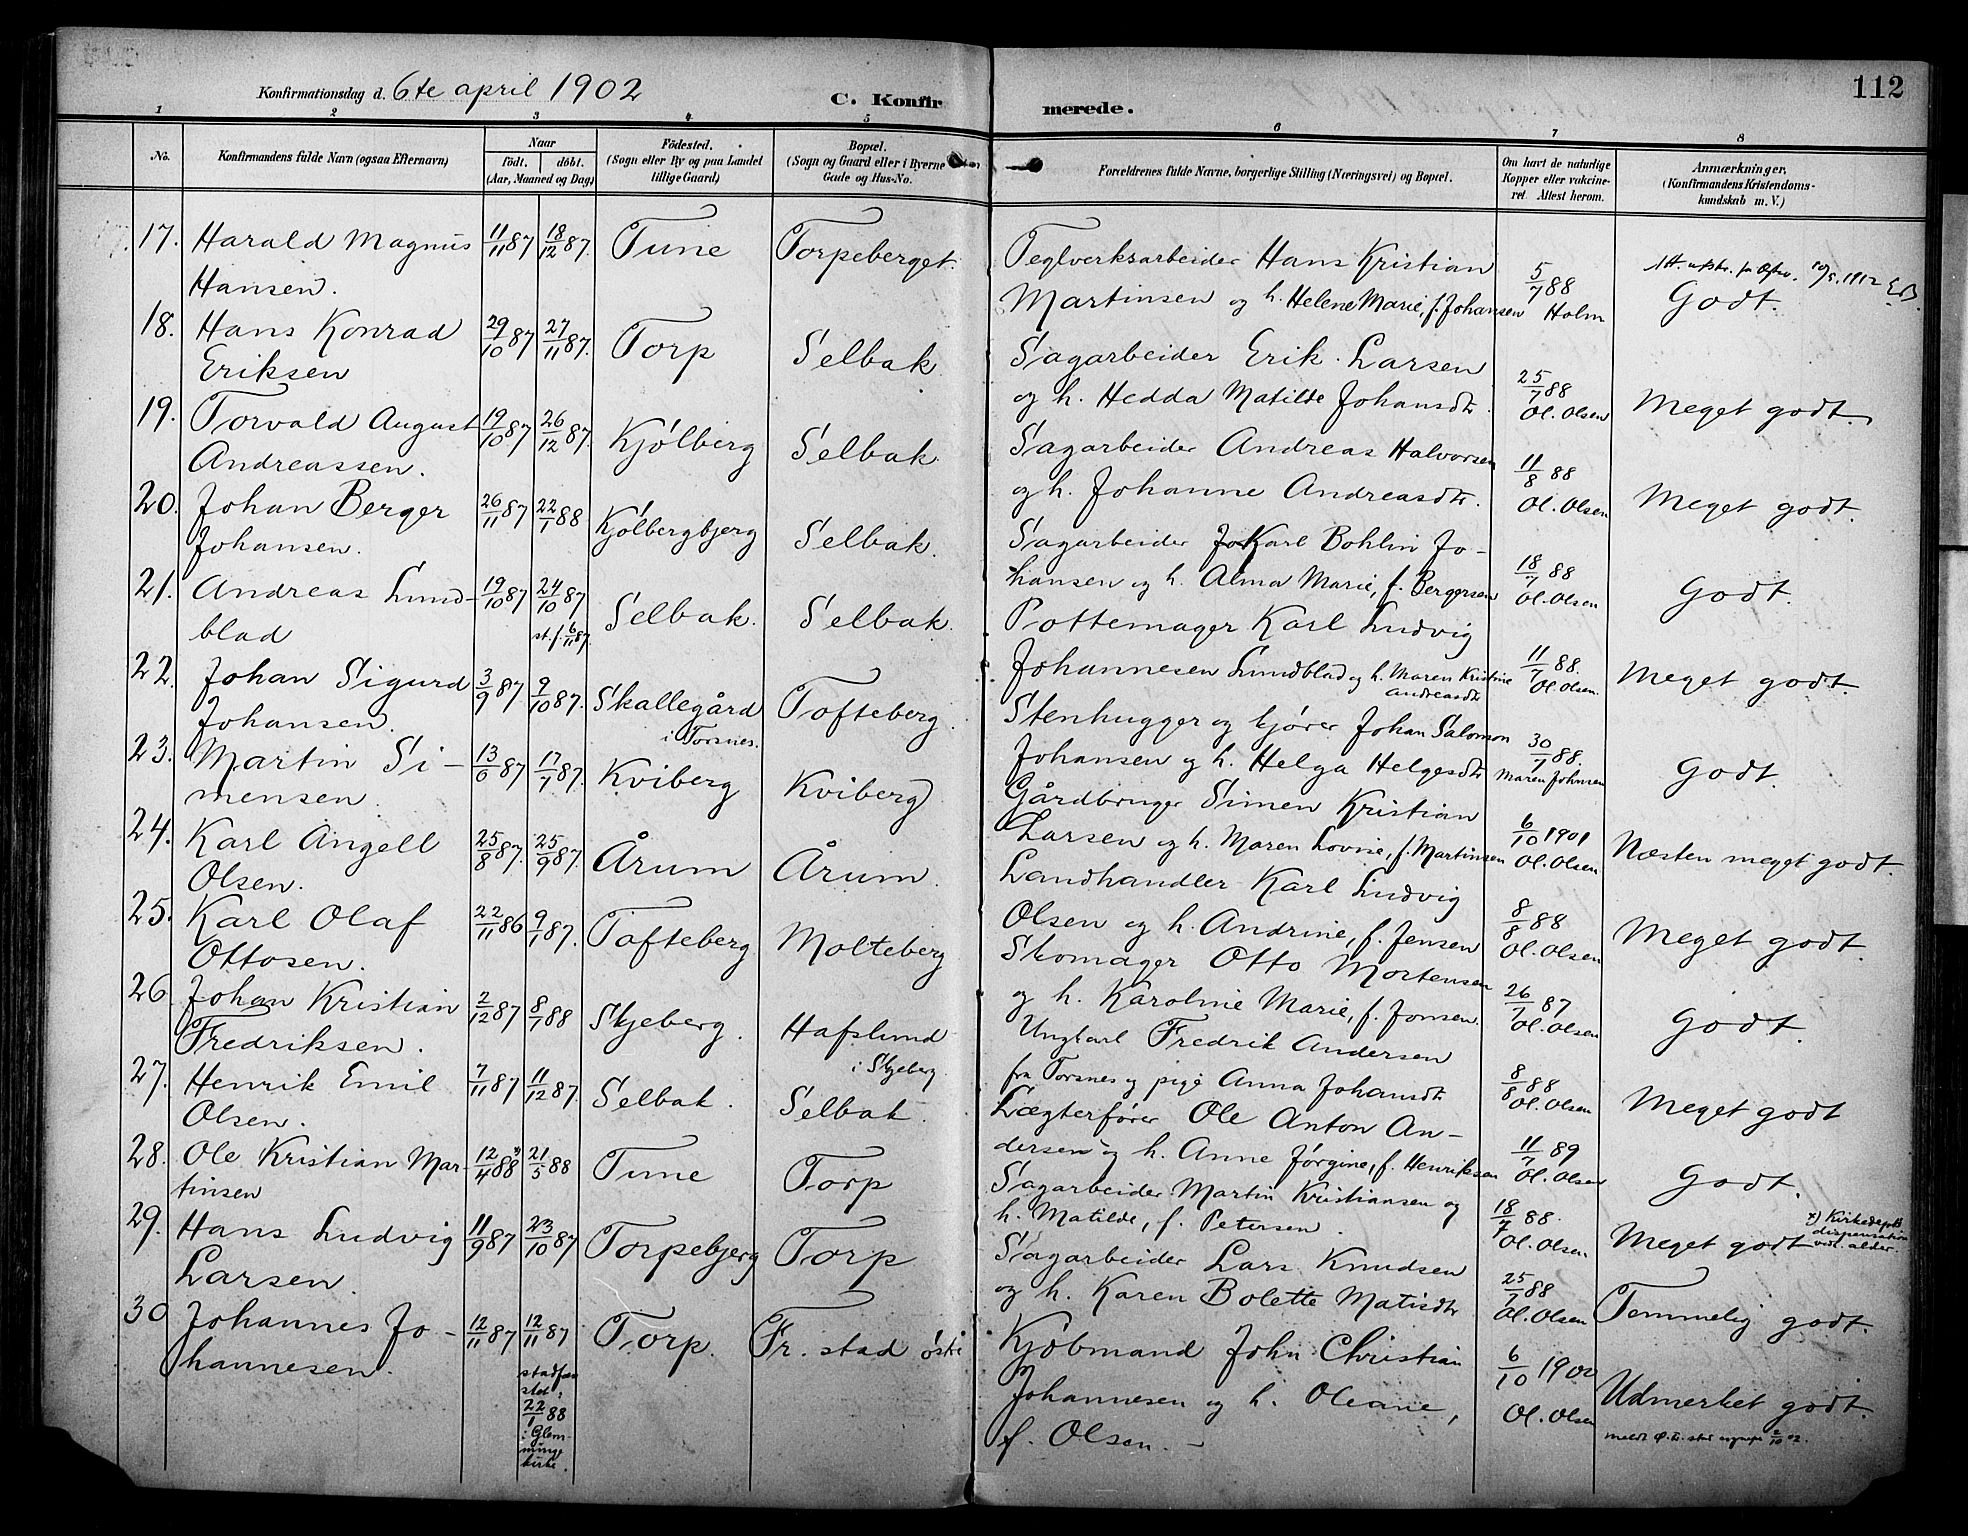 Konfirmationsdag d. 6te april 1902
C. Konfirmerede.
112
1 2 3 4 5 6 7 8
No.
Konfirmandens fulde Navn (ogsaa Efternavn)
Naar
födt. döbt.
(Aar, Maaned og Dag)
Födested.
(Sogn eller By og paa Landet
tillige Gaard)
Bopæl.
(Sogn og Gaard eller i Byerne
Gade og Hus-No.
Forældrenes fulde Navne, borgerlige Stilling (Næringsvei) og Bopæl.
Om havt de naturlige
Kopper eller vakcine-
ret. Attest herom.
Anmærkninger.
(Konfirmandens Kristendoms-
kundskab m. V.)
17. Harald Magnus 11/11 87 18/12 87. Tune Torpeberget.
Hansen.
Teglverksarbeider Hans Kristian
Martinsen og h. Helene Marie, f. Johansen
5/7 88
Holm
1912 EB.
Godt.
18. Hans Konrad 29/10 87 27/11 87. Torp Selbak
Eriksen
Sagarbeider Erik Larsen
og h. Hedda Matilde Johansdtr.
25/7 88
Ol. Olsen
Meget godt.
19. Torvald August 19/10 87 26/12 87. Kjølberg Selbak
Andreassen.
Sagarbeider Andreas Halvorsen
og h. Johanne Andreasdtr.
11/8 88
Ol. Olsen
Meget godt.
20. Johan Berger 26/11 87 22/1 88 Kjølbergbjerg Selbak.
Johansen.
Sagarbeider Karl Bohlin Jo-
hansen og h. Alma Marie, f. Bergersen
18/7 88
Ol. Olsen
Godt.
21. Andreas Lund- 19/10 87 24/10 87 Selbak. Selbak.
blad
st. f. 6/11 87.
Pottemager Karl Ludvig
Johannesen Lundblad og h. Maren Kristine
Andreasdtr
11/7 88.
Ol. Olsen.
Meget godt.
22. Johan Sigurd 3/9 87 9/10 87. Skallegård Tofteberg.
Johansen.
i Torsnes.
Stenhugger og kjører Johan Salomon
Johansen og h. Helga Helgesdtr
30/7 88.
Maren Johnsen
Godt.
23. Martin Si- 13/6 87 17/7 87. Kviberg Kviberg
mensen.
Gårdbruger Simen Kristian
Larsen og h. Maren Lovise, f. Martinsen
6/10 1901
Ol. Olsen
Næsten meget godt.
24. Karl Angell 25/8 87. 25/9 87. Årum Årum.
Olsen.
Landhandler Karl Ludvig
Olsen og h. Andrine, f. Jensen
8/8 88
Ol. Olsen
Meget godt.
25. Karl Olaf 22/11 86 9/1 87. Tofteberg Molteberg
Ottosen.
Skomager Otto Mortensen
og h. Karoline Marie, f. Jonsen.
26/7 87
Ol. Olsen
Godt.
26 Johan Kristian 2/12 87 8/1 88 Skjeberg. Hafslund
Fredriksen.
i Skjeberg
Ungkarl Fredrik Andersen
fra Torsnes og pige Anna Johansdtr
8/8 88
Ol. Olsen
Meget godt
27. Henrik Emil 7/11 87 11/12 87. Selbak. Selbak.
Olsen.
Lægterfører Ole Anton An-
dersen og h. Anne Jørgine, f. Henriksen
11/7 89
Ol. Olsen
Godt.
28. Ole Kristian Mar- 12/4 88 x) 21/5 88 Tune Torp
tinsen
Sagarbeider Martin Kristiansen og
h. Matilde, f. Petersen.
18/7 88.
Ol. Olsen
Meget godt
x) Kirkedepts
dispensation
vedk. alder.
29. Hans Ludvig 11/9 87 23/10 87 Torpebjerg Torp
Larsen
Sagarbeider Lars Knudsen
og h. Karen Bolette Matisdtr
25/7 88
Ol. Olsen
Temmelig godt.
30 Johannes Jo- 12/11 87 12/11 87 Torp. Fr. stad østre
hannesen.
stadfæ
stet:
22/1 88
i Glem-
minge
kirke.
Kjøbmand John Christian
Johannesen og h. Oleane,
f. Olsen.
6/10 1900
Ol. Olsen
Udmerket godt.